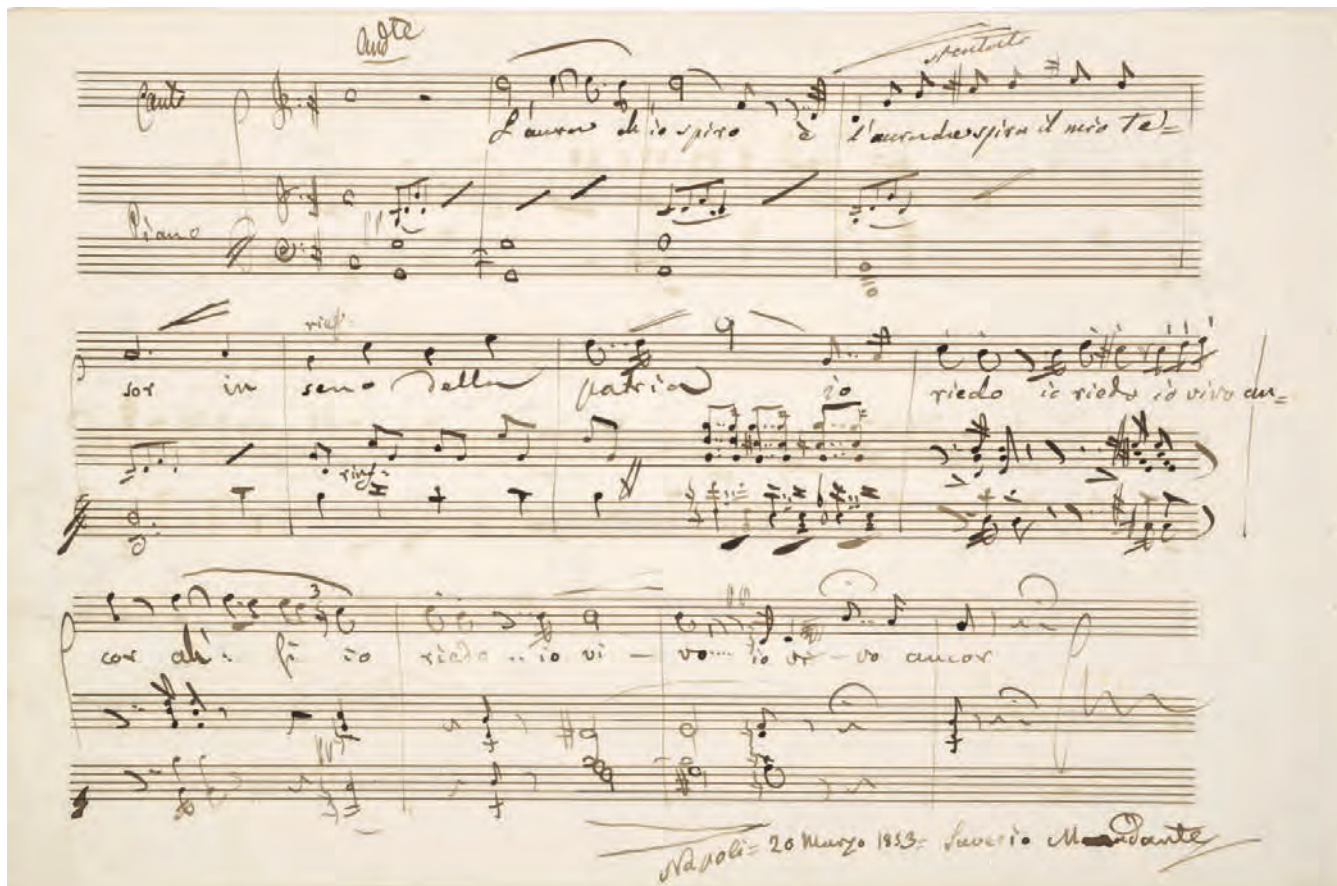 And.te
Canto
stentato
L'aura ch'io spiro è l'aura che spira il mio te=
Piano
pp
rinf.
sor in seno della patria io riedo io riedo io vivo an=
rinf.
3
pp
cor ah: sì io riedo .. io vi — vo.... io vi — vo ancor
pp
Napoli= 20 Marzo 1853= Saverio Mercadante